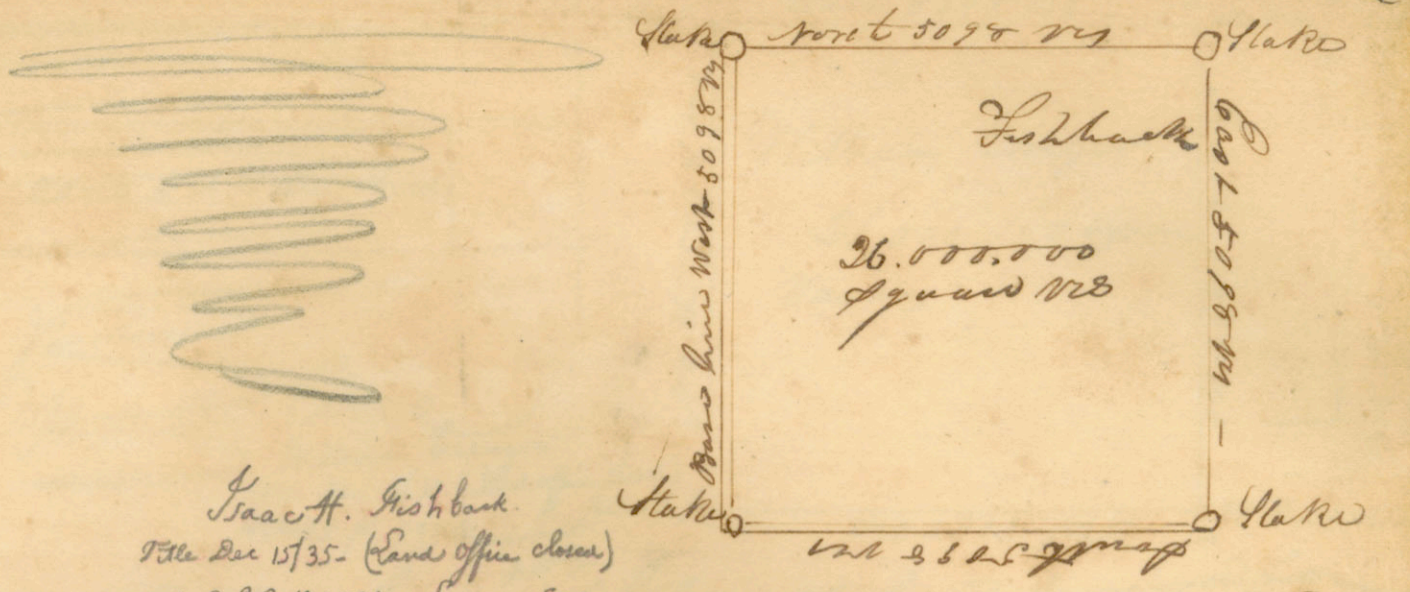 Stake North 5098 vrs Stake
Fishback
East 5098 vrs
Base Line West 5098 vrs
26.000.000
Square vrs
Stake Stake
South 5098 vrs
Isaac H. Fishback.
Title Dec 15/35- (Land Office closed)